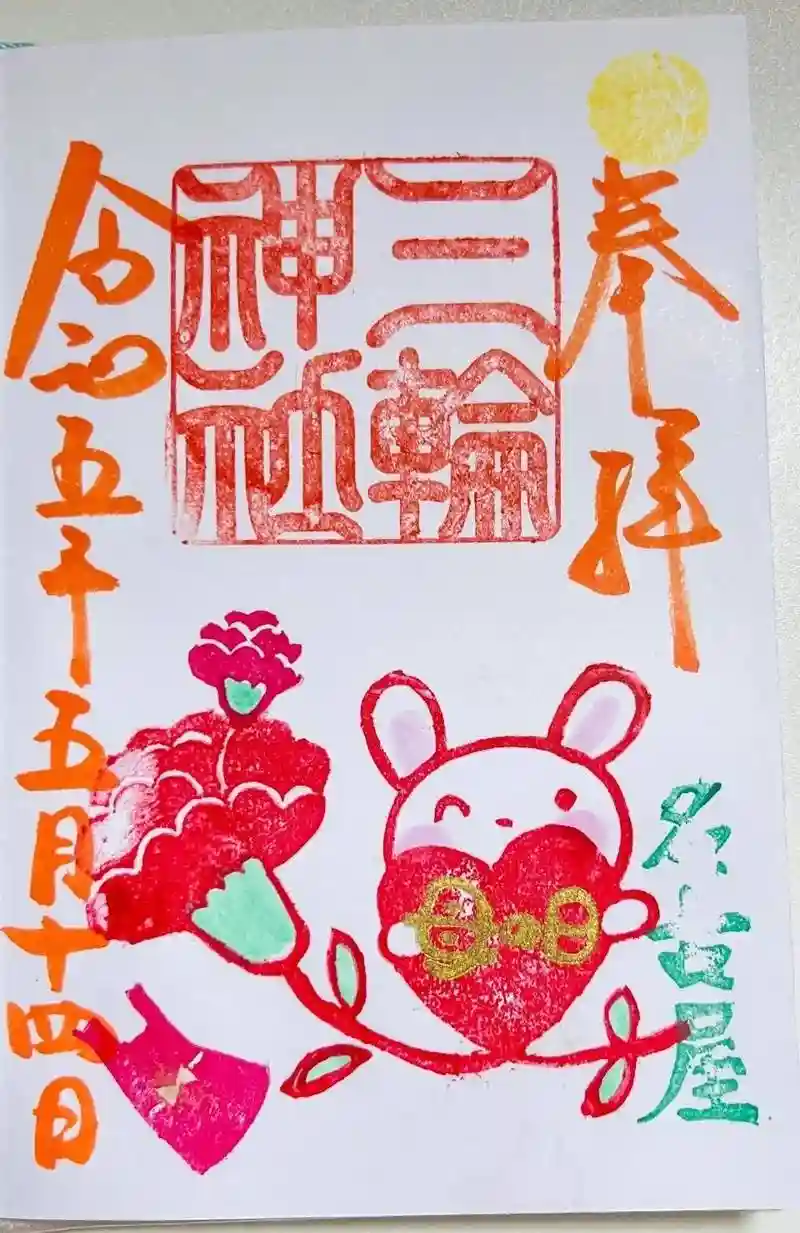 奉拝
名古屋
三輪
神社
母の日
令和五年五月十四日